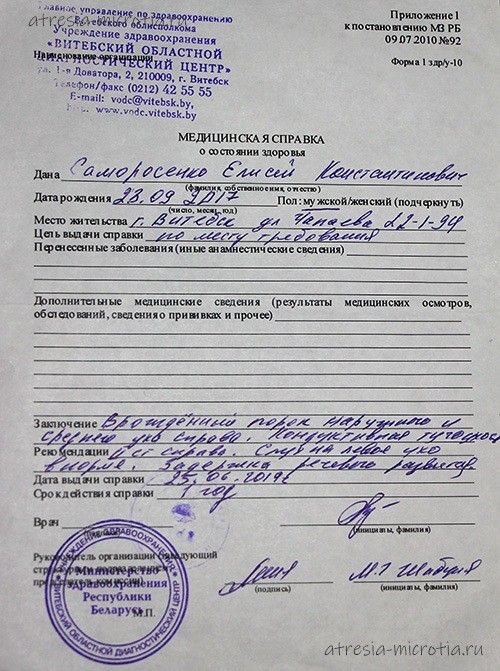 Главное управление по здравоохранению
atresia-microtia.ru
Витебского облисполкома
Учреждение здравоохранения
Наименование организации
«ВИТЕБСКИЙ ОБЛАСТНОЙ
ДИАГНОСТИЧЕСКИЙ ЦЕНТР»
ул. 1-я Доватора, 2, 210009, г. Витебск
Телефон/факс (0212) 42 55 55
E-mail: vodc@vitebsk.by,
http: www.vodc.vitebsk.by
Приложение 1
к постановлению МЗ РБ
09.07.2010 №92
Форма 1 здр/у-10
МЕДИЦИНСКАЯ СПРАВКА
о состоянии здоровья
Дана Саморосенко Елисей Константинович
(фамилия, собственное имя, отчество)
Дата рождения 23.09 2017 Пол: мужской/женский (подчеркнуть)
(число, месяц, год)
Место жительства г. Витебск ул Чапаева 22-1-94
Цель выдачи справки по месту требования
Перенесенные заболевания (иные анамнестические сведения)
Дополнительные медицинские сведения (результаты медицинских осмотров,
обследований, сведения о прививках и прочее)
Заключение Врождённый порок наружного и
среднего уха справа. Кондуктивная тугоухость
Рекомендации ст справа. Слух на левое ухо
в норме. Задержка речевого развития
Дата выдачи справки 25.06.2019г
Срок действия справки 1 год
Врач
(инициалы, фамилия)
Руководитель организации (заведующий
структурным подразделением,
председатель комиссии)
(подпись)
(инициалы, фамилия)
М.П.
УЧРЕЖДЕНИЕ ЗДРАВООХРАНЕНИЯ
ВИТЕБСКИЙ ОБЛАСТНОЙ ДИАГНОСТИЧЕСКИЙ ЦЕНТР
Министерство
здравоохранения
Республики
Беларусь
atresia-microtia.ru